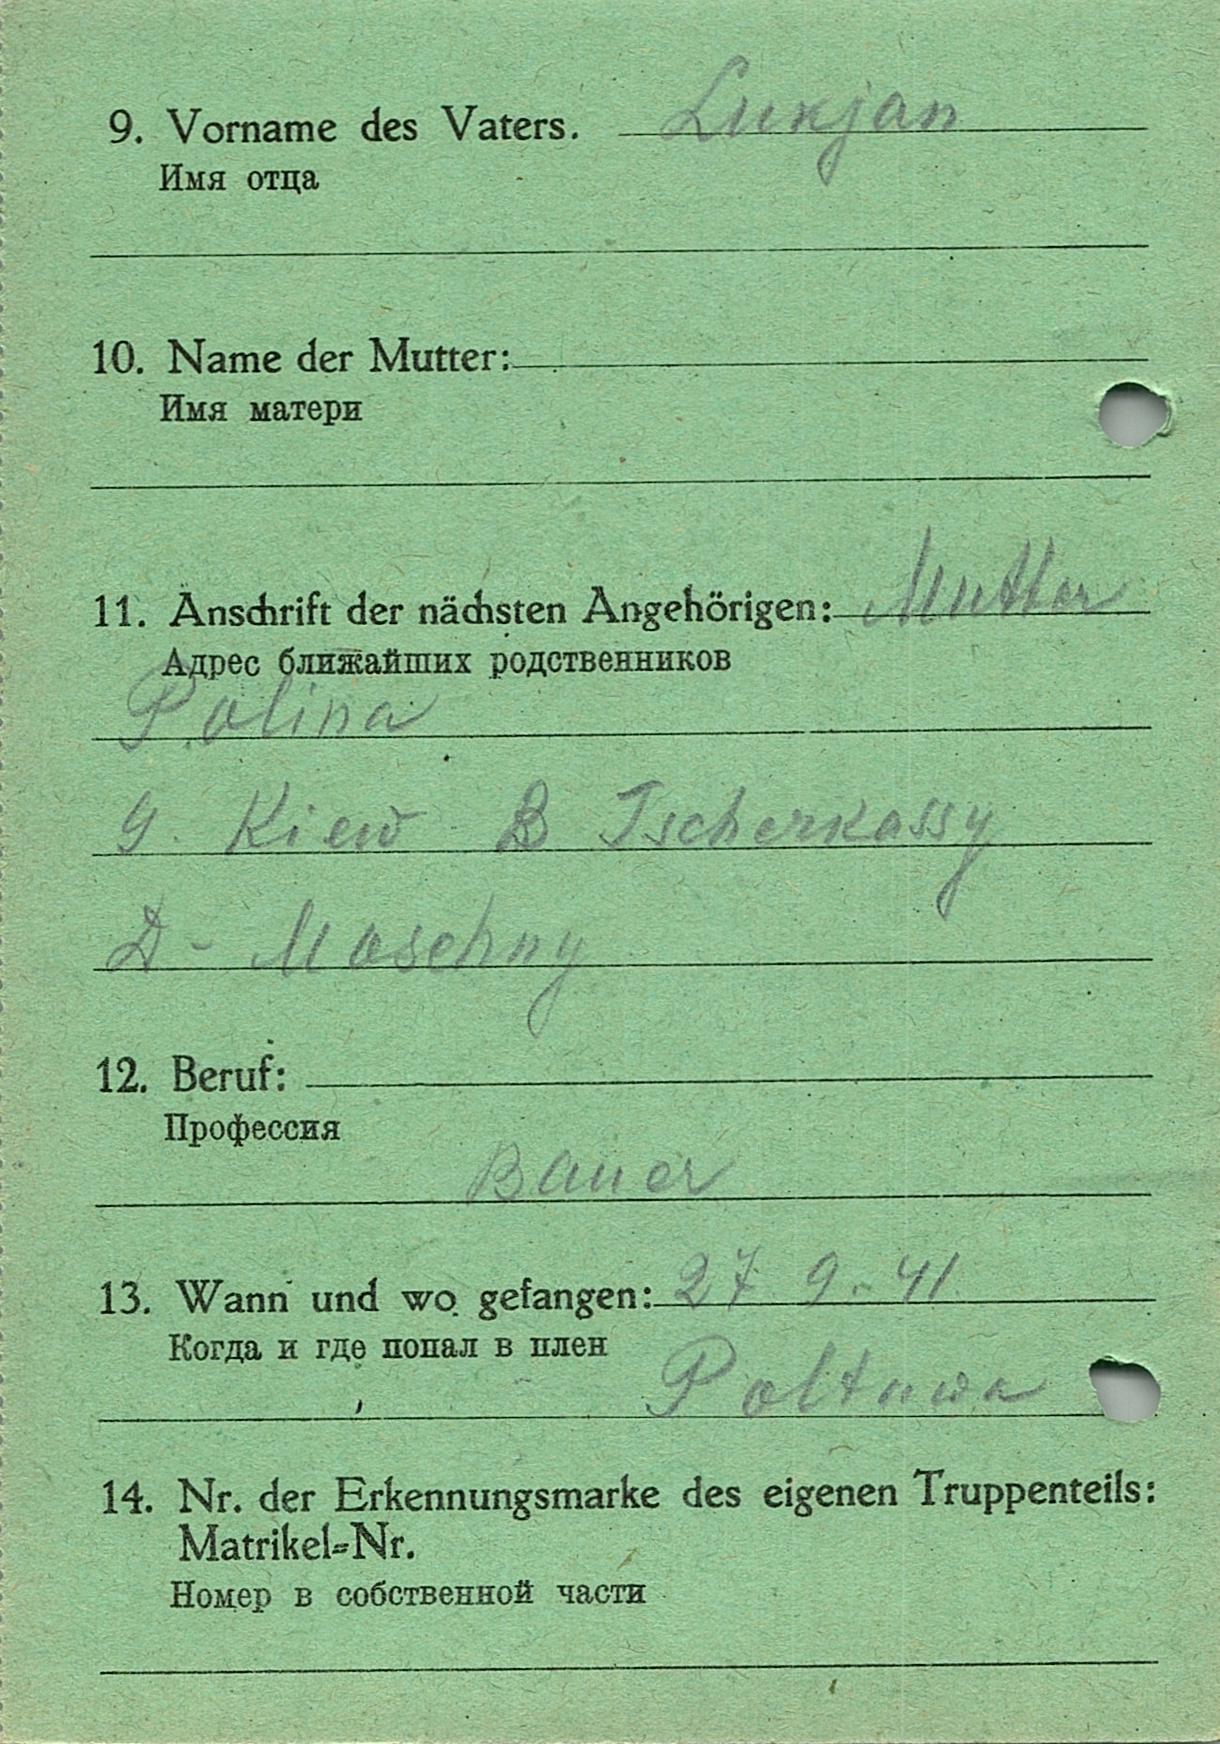 9. Vorname des Vaters. Lukjan
Имя отца
10. Name der Mutter:
Имя матери
11. Anschrift der nächsten Angehörigen: Mutter
Адрес ближайших родственников
Polina
G. Kiew B Tscherkassy
D - Moschny
12. Beruf:
Профессия
Bauer
13. Wann und wo gefangen: 27 9. 41
Когда и где попал в плен
Poltawa
14. Nr. der Erkennungsmarke des eigenen Truppenteils:
Matrikel=Nr.
Номер в собственной части